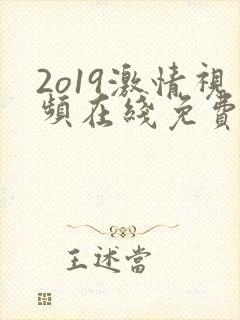 2o19激情視
頻在綫免費
王述當